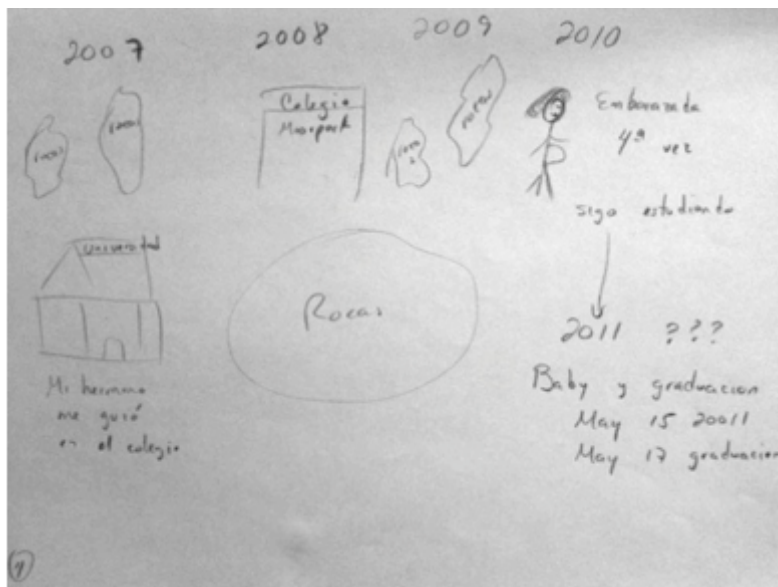 2007
2008
2009
2010
rocas
rocas
Colegio
Moorpark
rocas
rocas
Embarazada
4ª vez
sigo estudiando
Universidad
Mi hermano
me guió
en el colegio
Rocas
2011 ???
Baby y graduacion
May 15 20011
May 17 graduacion